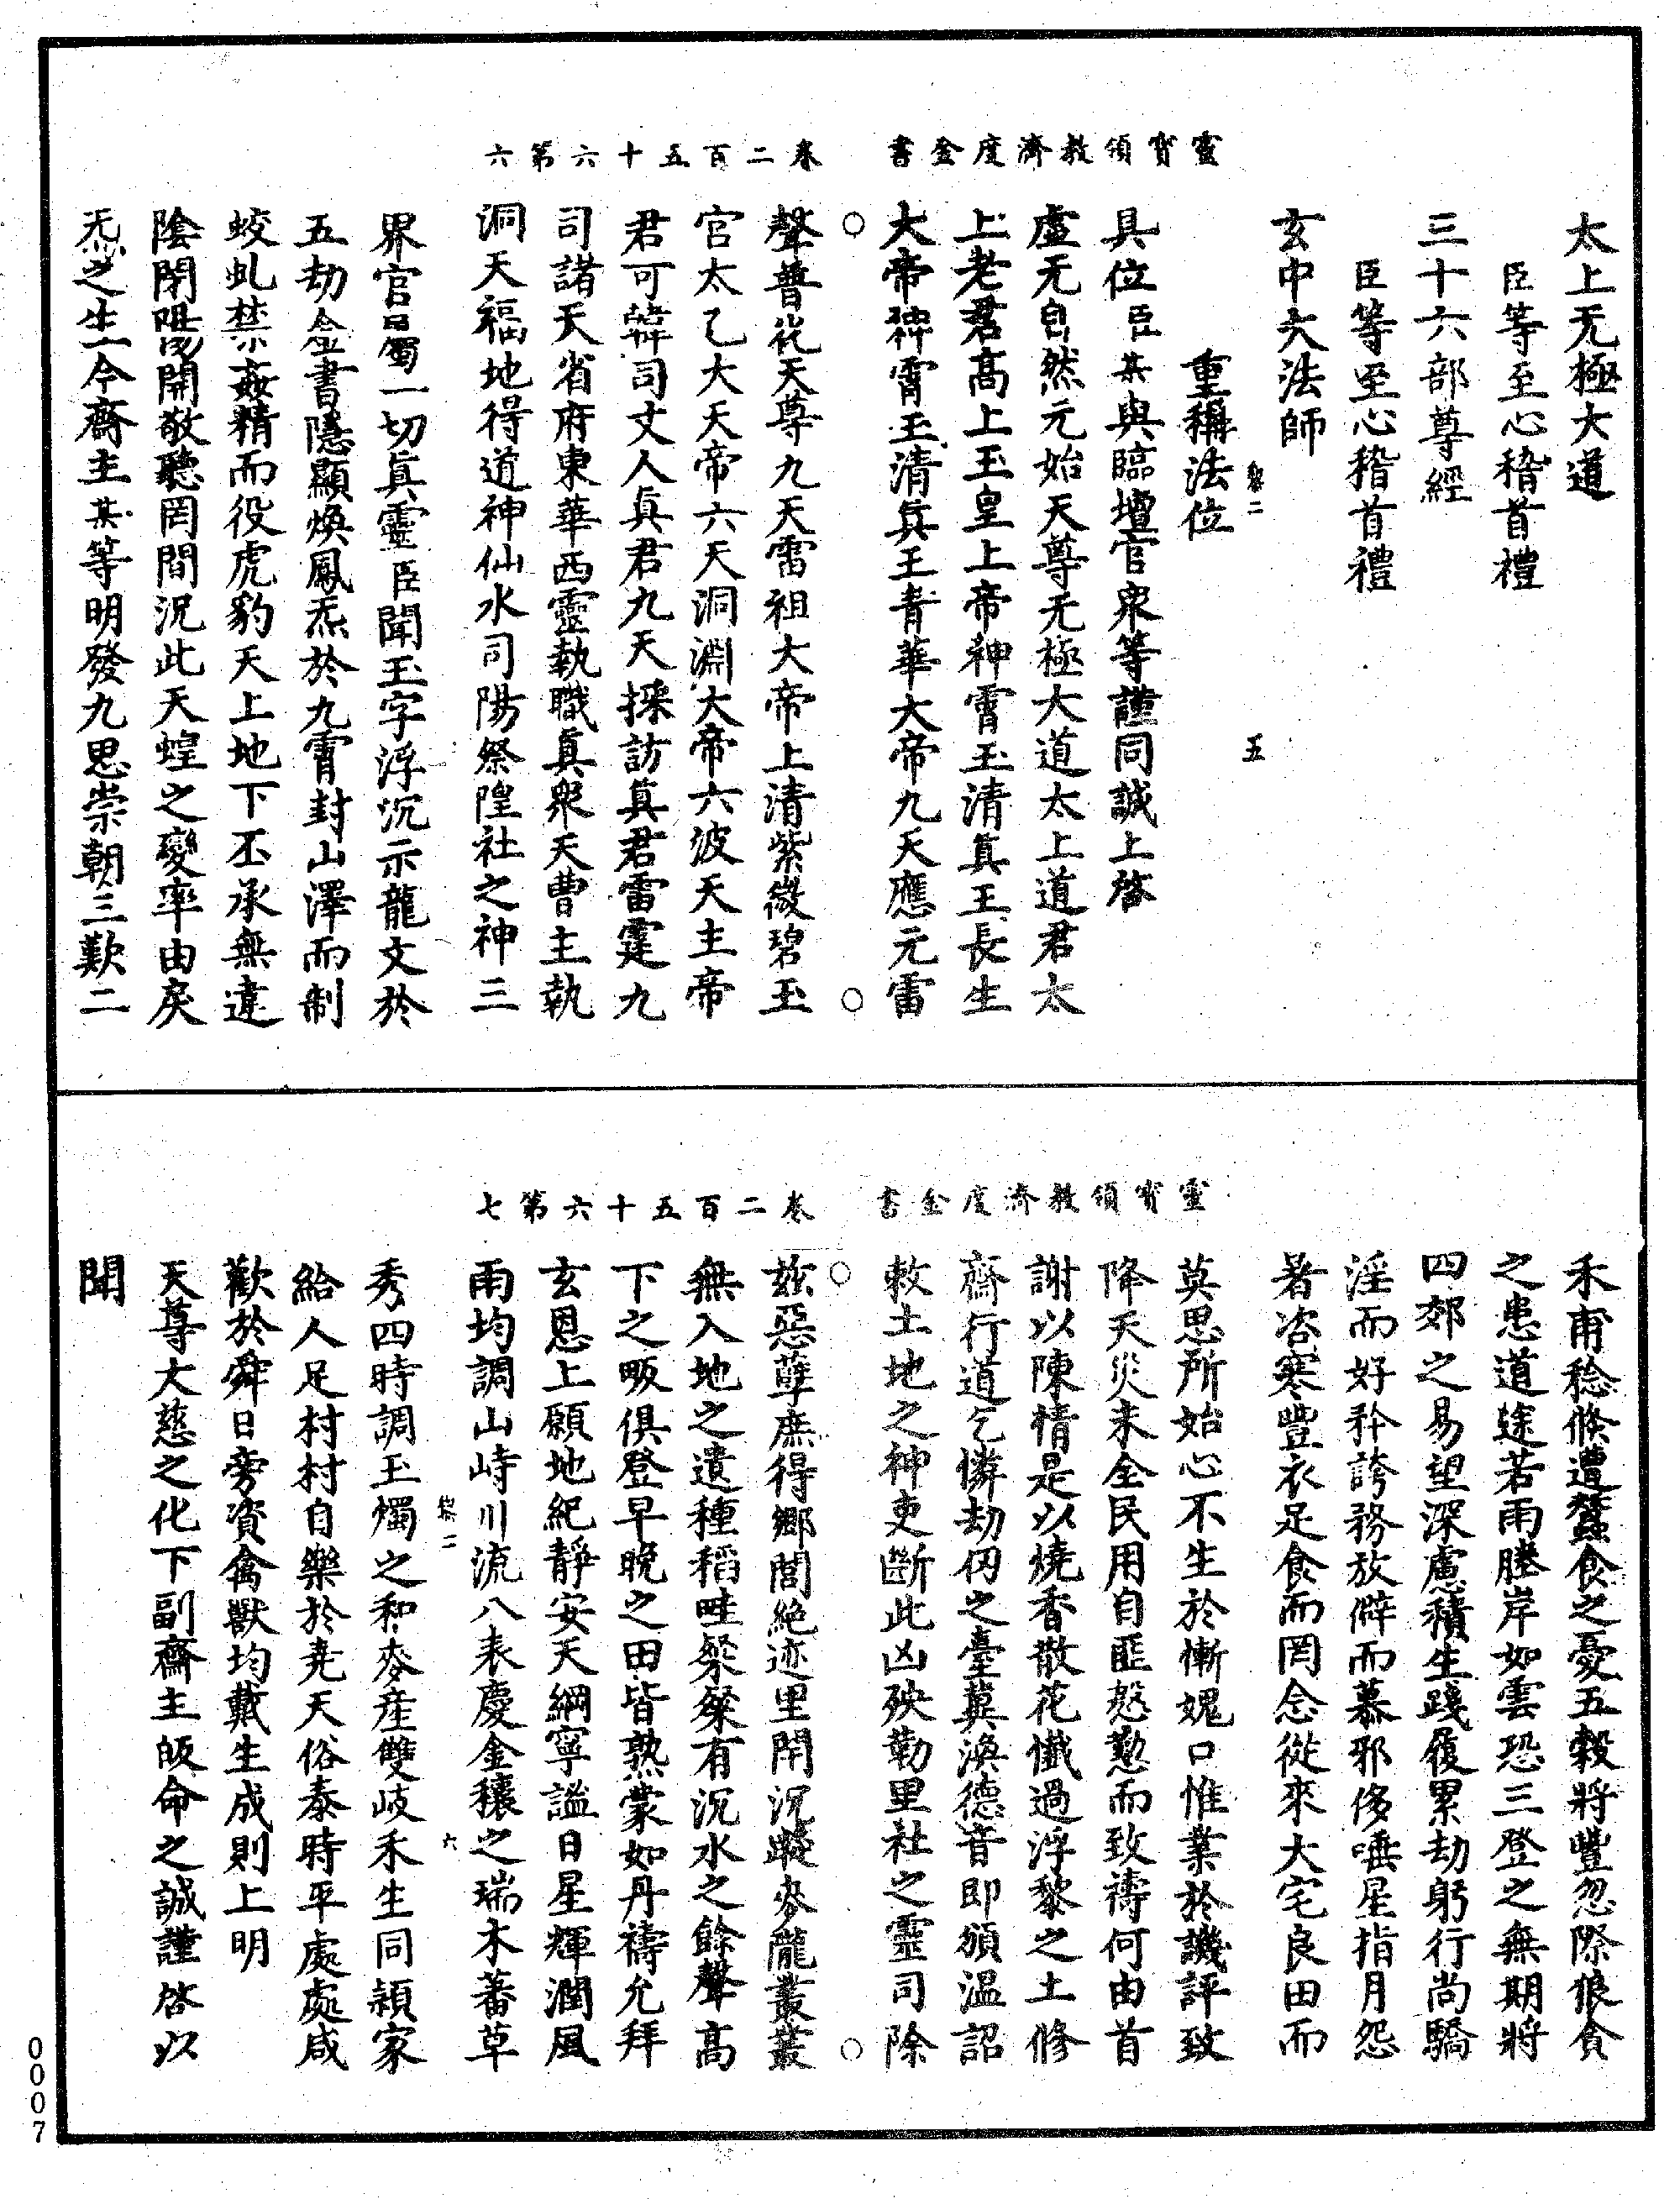 靈寶領教濟度金書
卷二百五十六第六
太上无極大道
臣等至心稽首禮
三十六部尊經
臣等至心稽首禮
玄中大法師
五
重稱法位
具位臣某與臨壇官衆等謹同誠上啓
虛无自然元始天尊无極大道太上道君太
上老君高上玉皇上帝神霄玉清真王長生
大帝神霄玉清真王青華大帝九天應元雷
聲普化天尊九天雷祖大帝上清紫微碧玉
官太乙大天帝六天洞淵大帝六波天主帝
君可韓司丈人真君九天採訪真君雷霆九
司諸天省府東華西靈執職真衆天曹主執
洞天福地得道神仙水司陽祭隍社之神三
界官屬一切真靈臣聞玉字浮沉示龍文於
五劫金書隱顯煥鳳炁於九霄封山澤而制
蛟虬禁姦精而役虎豹天上地下丕承無違
陰閉陽開敬聽罔間況此天蝗之變率由戾
炁之生今齋主某等明發九思崇朝三歎二
靈寶領教濟度金書
卷二百五十六第七
禾甫稔倐遭蠶食之憂五穀將豐忽際狼貪
之患道途若雨塍岸如雲恐三登之無期將
四郊之易望深慮積生踐履累劫躬行尚驕
淫而好矜誇務放僻而慕邪侈唾星指月怨
暑咨寒豐衣足食而罔念從來大宅良田而
莫思所始心不生於慚媿口惟業於譏評致
降天災来全民用自匪懇懃而致禱何由首
謝以陳情是以燒香散花懺過浮黎之土修
齋行道乞憐劫仞之臺冀渙德音即頒温詔
敕土地之神吏斷此凶殃勒里社之靈司除
兹惡孽庶得鄉閭絕迹里閈沉蹤麥隴叢叢
無入地之遺種稻畦粲粲有沉水之餘聲高
下之畈俱登早晚之田皆熟蒙如丹禱允拜
玄恩上願地紀靜安天綱寧謐日星輝潤風
雨均調山峙川流八表慶金穰之瑞木蕃草
六
秀四時調玉燭之和麥産雙岐禾生同穎家
給人足村村自樂於尭天俗泰時平處處咸
歡於舜日旁資禽獸均戴生成則上明
天尊大慈之化下副齋主皈命之誠謹啓以
聞
0007